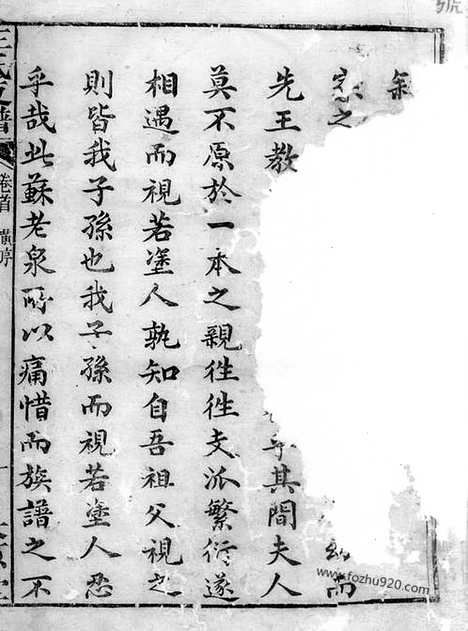 先王教
乎其間夫人
莫不原於一本之親徃徃支派繁衍遂
相遇而視若塗人孰知自吾祖父視之
則皆我子孫也我子孫而視若塗人忍
乎哉此蘇老泉所以痛惜而族譜之不
王氏支譜
卷首
www.fozhu920.com